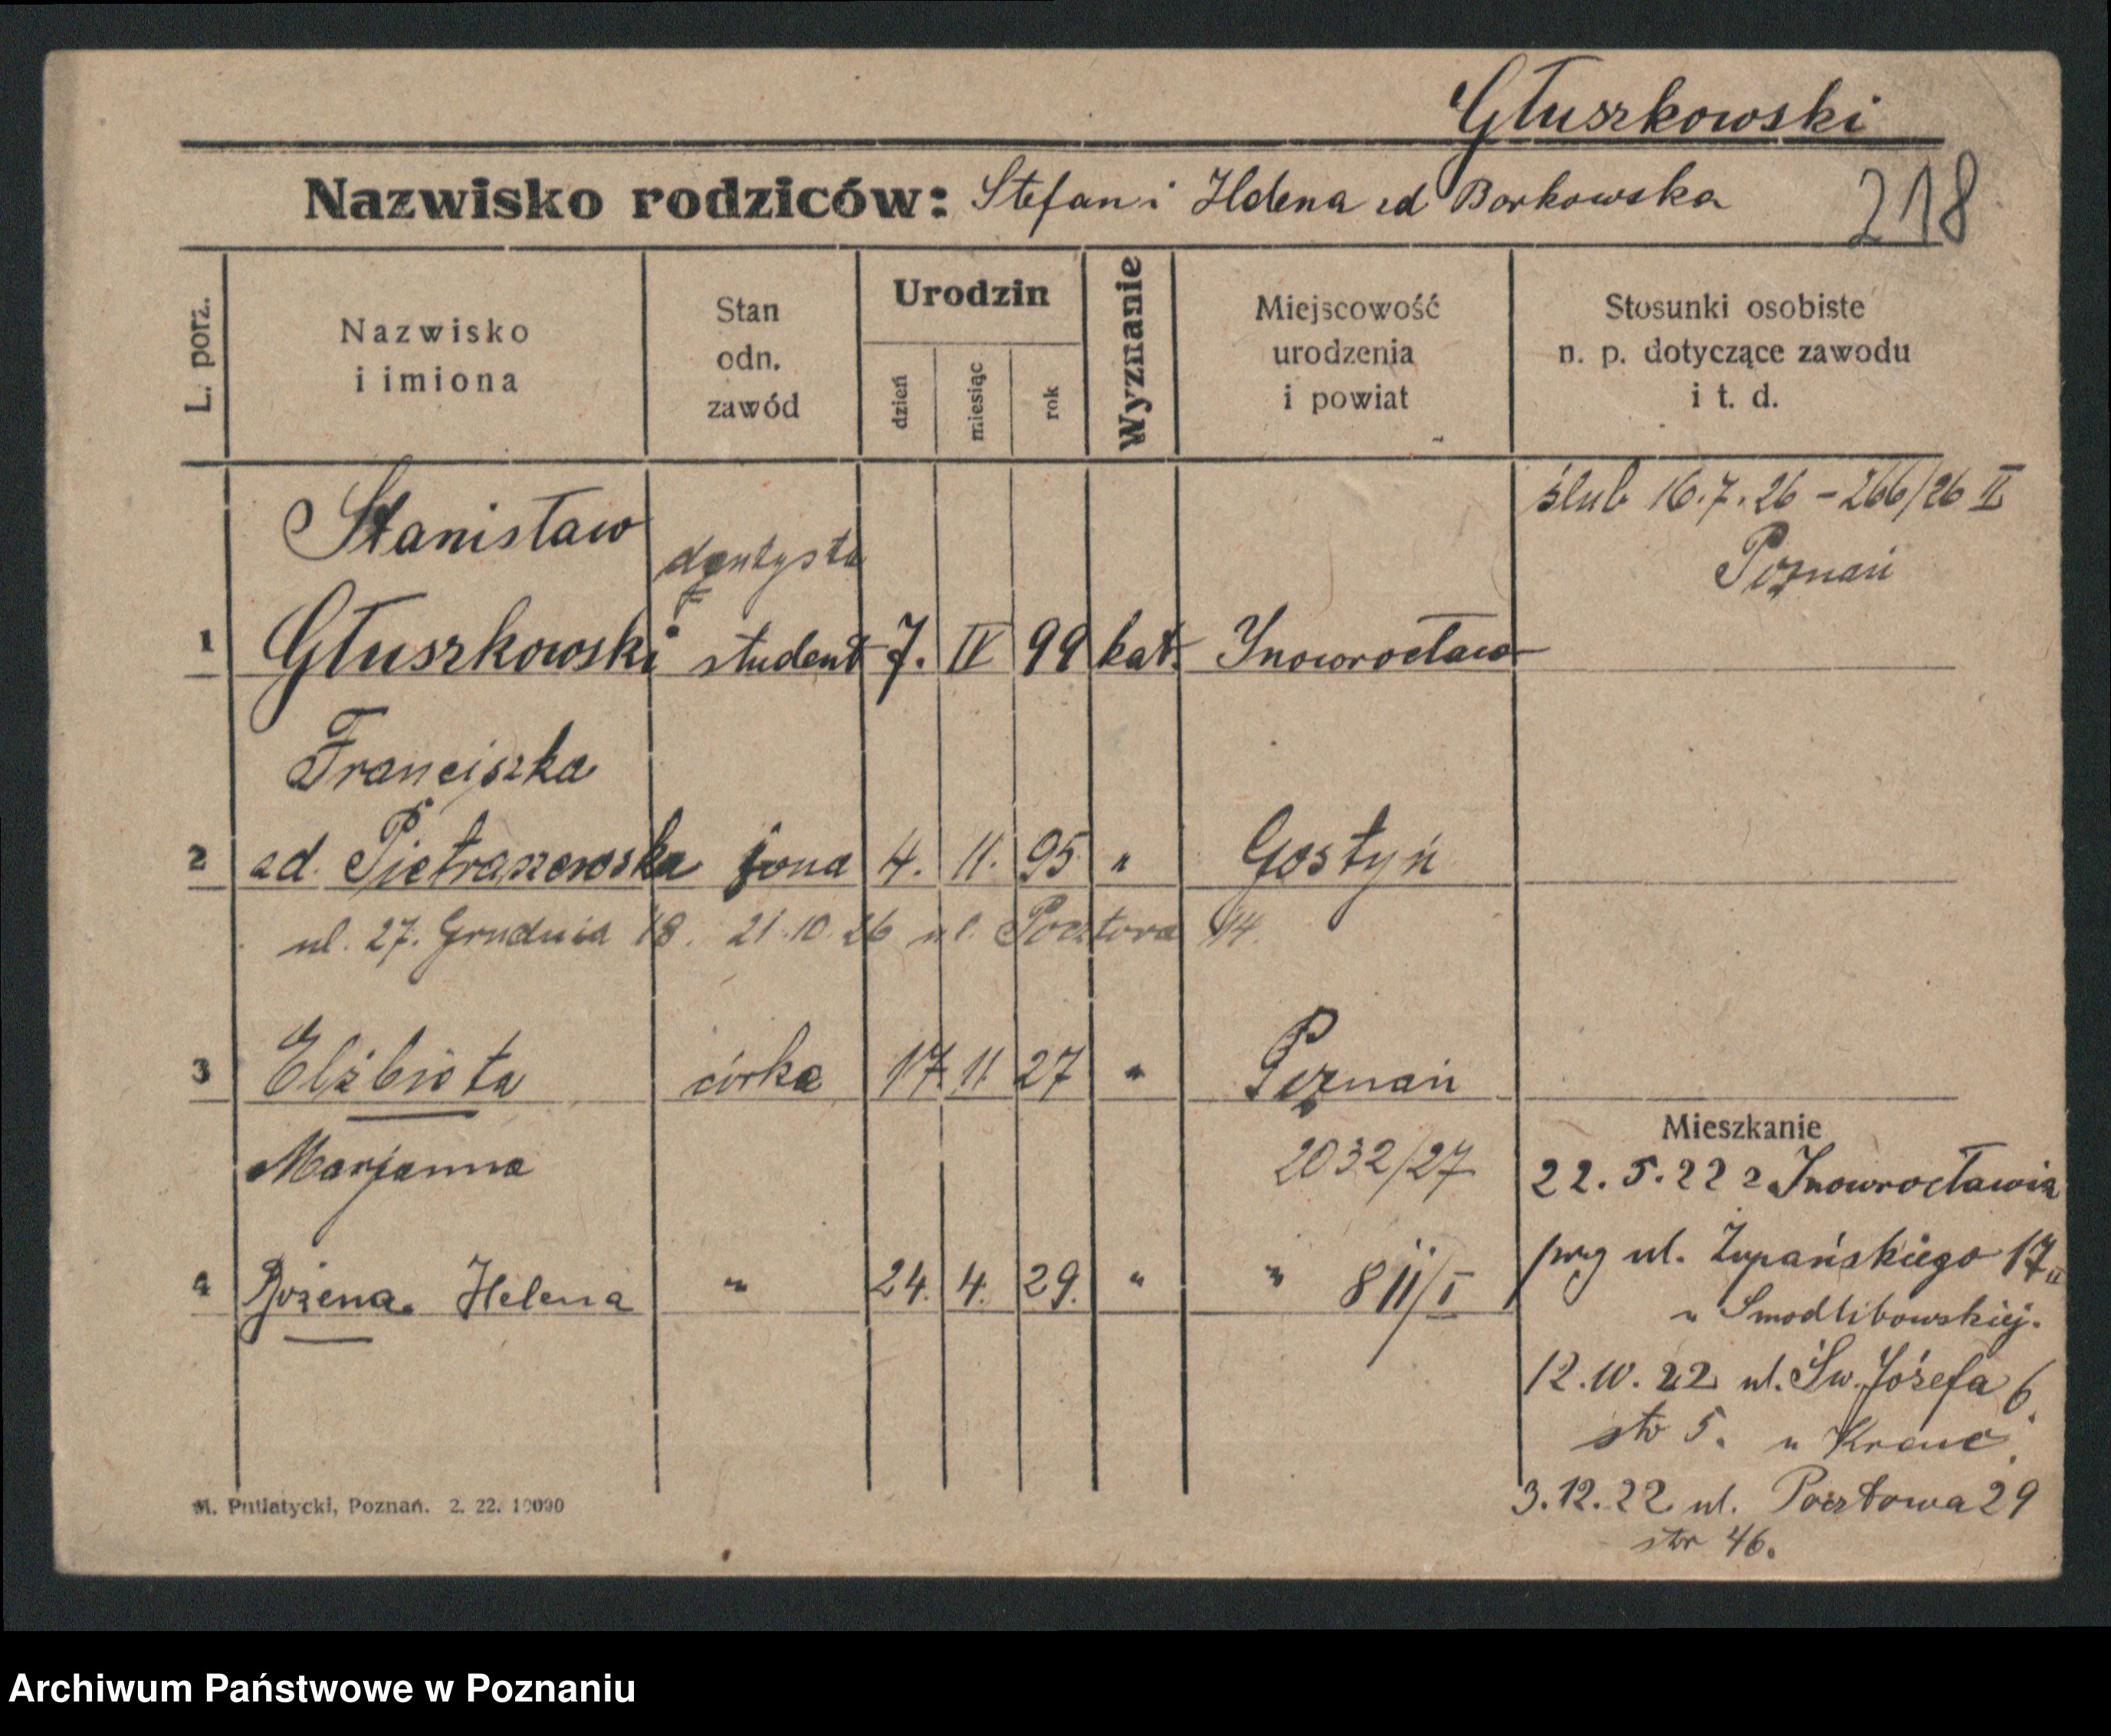 Głuszkowski
Nazwisko rodziców: Stefan i Helena zd Borkowska
218
L. porz.
Nazwisko
i imiona
Stan
odn.
zawód
Urodzin
dzień
miesiąc
rok
Wyznanie
Miejscowość
urodzenia
i powiat
Stosunki osobiste
n. p. dotyczące zawodu
i t. d.
ślub 16.7.26 – 266/26 II
Poznań
Stanisław
dentysta
1 Głuszkowski student 7. IV 99 kat. Inowrocław
Franciszka
2 zd. Pietraszewska żona 4. 11. 95 " Gostyń
ul. 27. Grudnia 18. 21.10.26 ul. Pocztowa 14.
3 Elżbieta córka 17. 11. 27 " Poznań
Marjanna 2032/27
4 Bożena Helena " 24. 4. 29. " " 811/I
Mieszkanie
22.5.22 z Inowrocławia
przy ul. Żupańskiego 17 II
u Smodlibowskiej.
12.10.22 ul. Św. Józefa 6.
str 5. u
3.12.22 ul. Pocztowa 29
str 46.
M. Putiatycki, Poznań. 2. 22. 10000
Archiwum Państwowe w Poznaniu